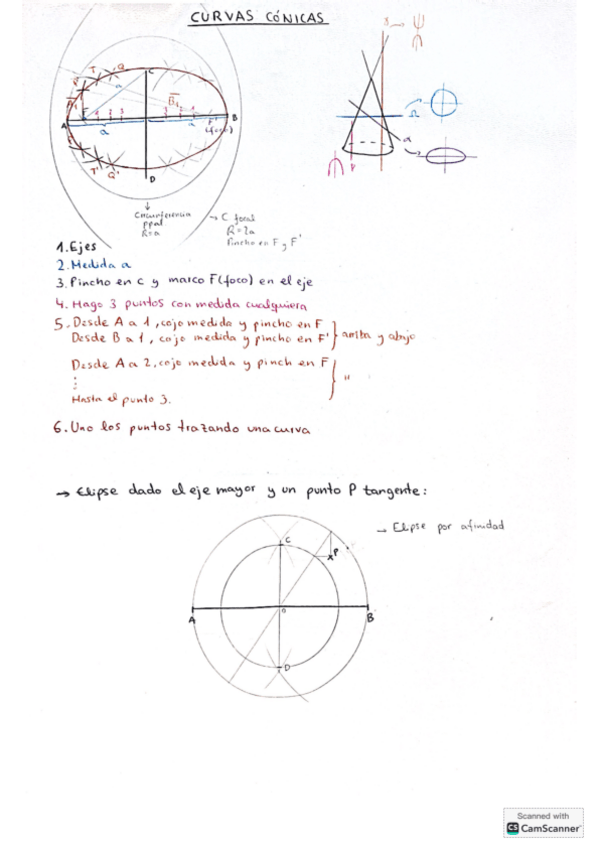 CURVAS CÓNICAS
C
T
Q
a
A
1
2
3
B
(foco)
a
a
T'
Q'
D
Circunferencia
ppal
R=a
C focal
R=2a
Pincho en F y F'
1. Ejes
2. Medida a
3. Pincho en C y marco F (foco) en el eje
4. Hago 3 puntos con medida cualquiera
5. Desde A a 1, cojo medida y pincho en F
Desde B a 1, cojo medida y pincho en F'
arriba y abajo
Desde A a 2, cojo medida y pinch en F
"
Hasta el punto 3.
6. Uno los puntos trazando una curva
→ Elipse dado el eje mayor y un punto P tangente:
→ Elipse por afinidad
C
P
O
A
B
D
Scanned with
CS CamScanner